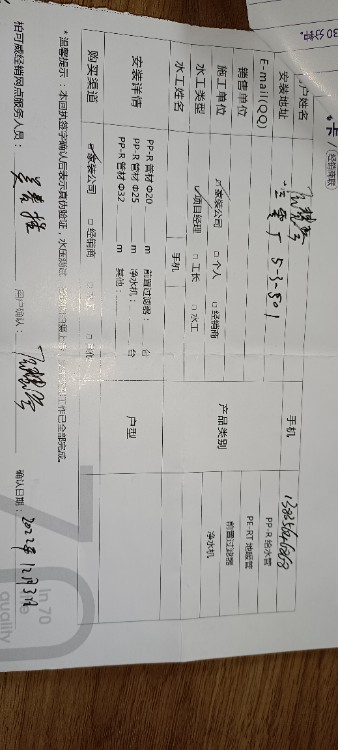 30分钟
(经销商联
户姓名
手机
安装地址
5-3-501
E-mail(QQ)
销售单位
产品类别
PP-R 给水管
PE-RT 地暖管
前置过滤器
净水机
施工单位 家装公司 □ 个人 □ 经销商
水工类型 项目经理 □ 工长 □ 水工
水工姓名 手机
安装详情
PP-R 管材 Φ20 m 前置过滤器: 台
PP-R 管材 Φ25 m 净水机: 台
PP-R 管材 Φ32 m 其他:
户型
购买渠道 家装公司 □ 经销商
*温馨提示:本回执签字确认后表示真伪验证,水压测试
工作已全部完成。
柏可威经销网点服务人员:
用户确认:
确认日期: 2022年12月3日
70
in 70
quality